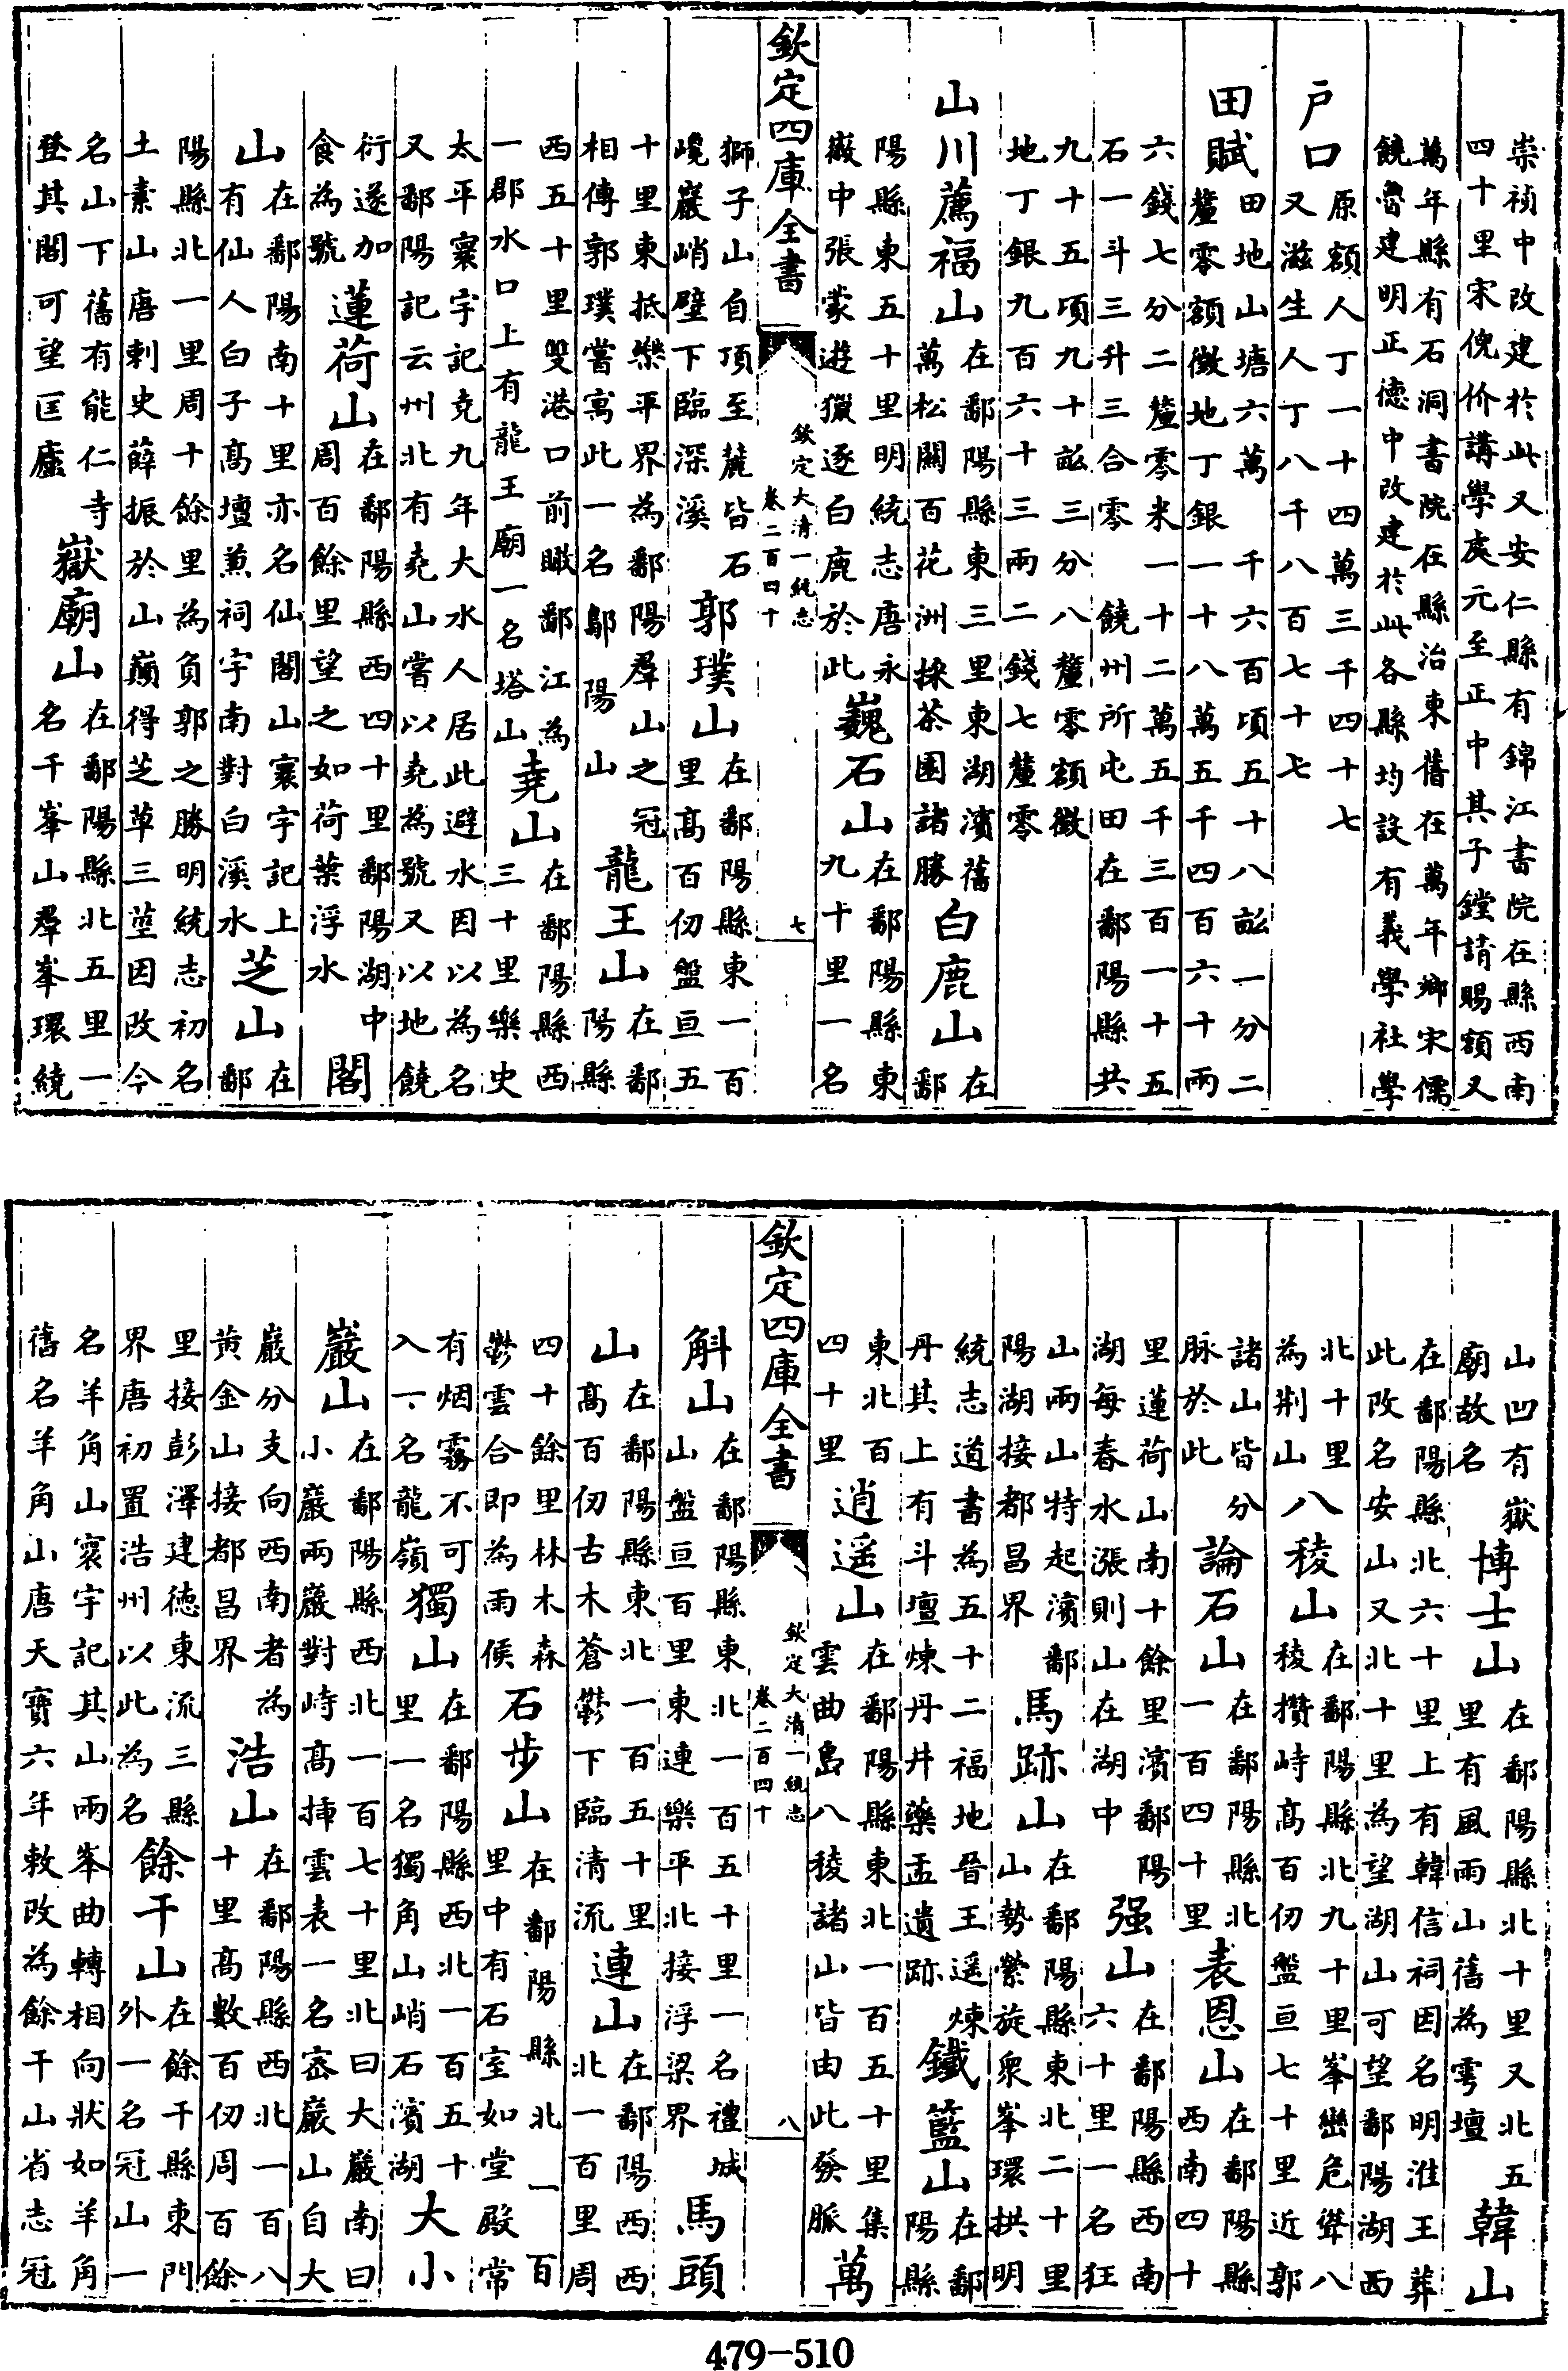 崇禎中改建於此又安仁縣有錦江書院在縣西南
四十里宋倪价講學處元至正中其子鏜請賜額又
萬年縣有石洞書院在縣治東舊在萬年鄉宋儒
饒魯建明正德中改建於此各縣均設有義學社學
户口
原額人丁一十四萬三千四十七
又滋生人丁八千八百七十七
田賦
田地山塘六萬千六百頃五十八畝一分二
釐零額徵地丁銀一十八萬五千四百六十兩
六錢七分二釐零米一十二萬五千三百一十五
石一斗三升三合零 饒州所屯田在鄱陽縣共
九十五頃九十畝三分八釐零額徵
地丁銀九百六十三兩二錢七釐零
山川薦福山
在鄱陽縣東三里東湖濱舊
萬松關百花洲採茶園諸勝
白鹿山
在
鄱
陽縣東五十里明統志唐永
嶶中張蒙遊獵逐白鹿於此
巍石山
在鄱陽縣東
九十里一名
欽定四庫全書
欽定大清一統志
卷二百四十
七
獅子山自頂至麓皆石
巉巖峭壁下臨深溪
郭璞山
在鄱陽縣東一百
里高百仞盤亘五
十里東抵樂平界為鄱陽羣山之冠
相傳郭璞嘗寓此一名鄔陽山
龍王山
在鄱
陽縣
西五十里雙港口前瞰鄱江為
一郡水口上有龍王廟一名塔山
堯山
在鄱陽縣西
三十里樂史
太平寰宇記堯九年大水人居此避水因以為名
又鄱陽記云州北有堯山嘗以堯為號又以地饒
衍遂加
食為號
蓮荷山
在鄱陽縣西四十里鄱陽湖中
周百餘里望之如荷葉浮水
閣
山
在鄱陽南十里亦名仙閣山寰宇記上
有仙人白子高壇兼祠宇南對白溪水
芝山
在
鄱
陽縣北一里周十餘里為負郭之勝明統志初名
土素山唐刺史薛振於山巔得芝草三莖因改今
名山下舊有能仁寺
登其閣可望匡廬
嶽廟山
在鄱陽縣北五里一
名千峯山羣峯環繞
山凹有嶽
廟故名
博士山
在鄱陽縣北十里又北五
里有風雨山舊為雩壇
韓山
在鄱陽縣北六十里上有韓信祠因名明淮王葬
此改名安山又北十里為望湖山可望鄱陽湖西
北十里
為荆山
八稜山
在鄱陽縣北九十里峯巒危聳八
稜攢峙高百仞盤亘七十里近郭
諸山皆分
脉於此
論石山
在鄱陽縣北
一百四十里
表恩山
在鄱陽縣
西南四十
里蓮荷山南十餘里濱鄱陽
湖每春水漲則山在湖中
强山
在鄱陽縣西南
六十里一名狂
山兩山特起濱鄱
陽湖接都昌界
馬跡山
在鄱陽縣東北二十里
山勢縈旋衆峯環拱明
統志道書為五十二福地晉王遥煉
丹其上有斗壇煉丹井藥盂遺跡
鐵籃山
在鄱
陽縣
東北百
四十里
逍遥山
在鄱陽縣東北一百五十里集
雲曲島八稜諸山皆由此發脈
萬
欽定四庫全書
欽定大清一統志
卷二百四十
八
斛山
在鄱陽縣東北一百五十里一名禮城
山盤亘百里東連樂平北接浮梁界
馬頭
山
在鄱陽縣東北一百五十里
高百仞古木蒼鬱下臨清流
連山
在鄱陽西西
北一百里周
四十餘里林木森
鬱雲合即為雨候
石步山
在鄱陽縣北一百
里中有石室如堂殿常
有烟霧不可
入一名龍嶺
獨山
在鄱陽縣西北一百五十
里一名獨角山峭石濱湖
大小
巖山
在鄱陽縣西北一百七十里北曰大巖南曰
小巖兩巖對峙高揷雲表一名宻巖山自大
巖分支向西南者為
黃金山接都昌界
浩山
在鄱陽縣西北一百八
十里高數百仞周百餘
里接彭澤建德東流三縣
界唐初置浩州以此為名
餘干山
在餘干縣東門
外一名冠山一
名羊角山寰宇記其山兩峯曲轉相向狀如羊角
舊名羊角山唐天寶六年敕改為餘干山省志冠
479-510